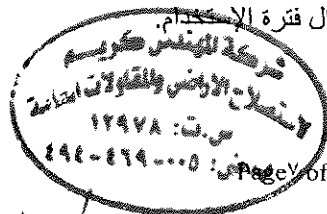 ل فترة الإستخدام.
شركة المهندس كريم
لاستصلاح الاراضى والمقاولات العامة
س.ت: ١٢٩٧٨
٤٩٤-٤٦٩-٠٠٥
Page٧ of